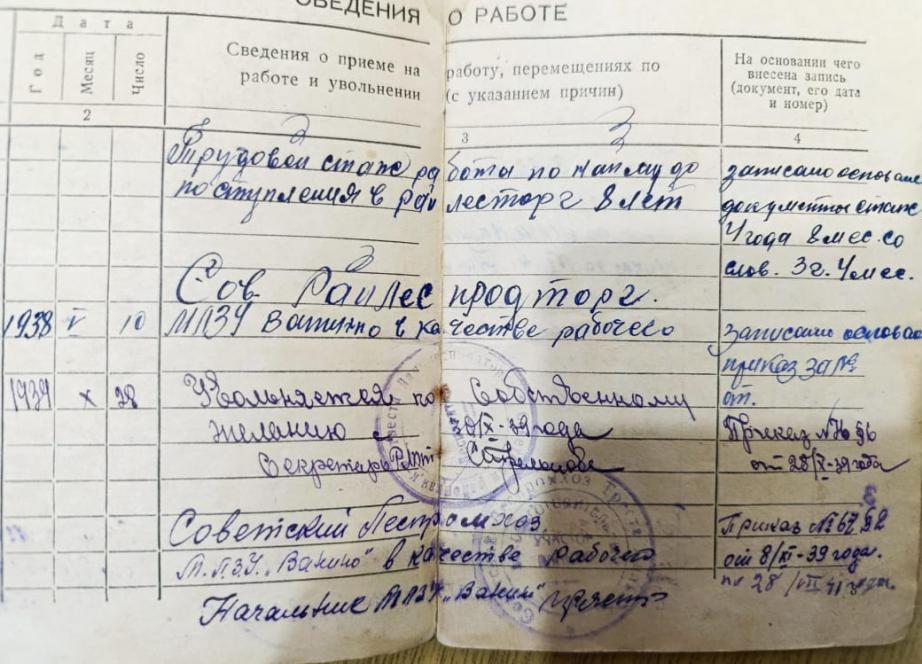 СВЕДЕНИЯ О РАБОТЕ
Дата
Год
Месяц
Число
Сведения о приеме на работу, перемещениях по
работе и увольнении (с указанием причин)
На основании чего
внесена запись
(документ, его дата
и номер)
2 3 4
3 3
Трудовой стаж работы по найму до
поступления в рай лесторг 8 лет
записано
документы стаж
4 года 8 мес. со
слов. 3 г. 4 мес.
Сов. Райлес продторг.
1938 V 10 МЛЗУ Ванино в качестве рабочего
записано
приказ за №
от.
1939 X 28 Увольняется по Собственному
желанию 28/X-39 года
Секретарь
Приказ № 96
от 28/X-39 года
Советский Лестромхоз
М.Л.З.У. „Ванино" в качестве рабочего
Начальник МЛЗУ „Ванин"
Приказ № 67
от 8/XI-39 года.
по 28/VII 41 года.